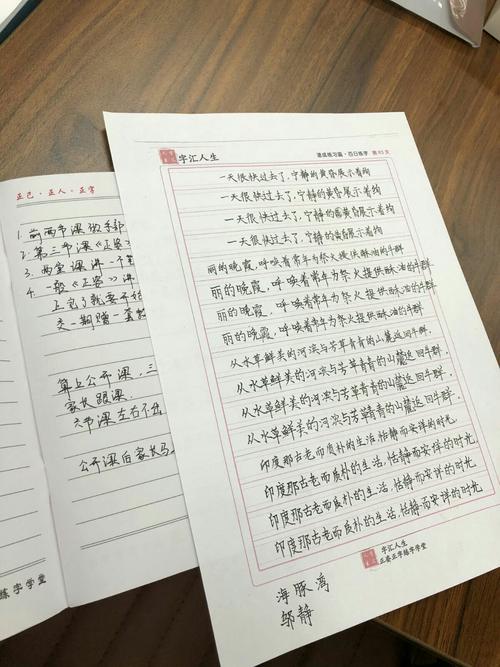 正己·正人·正字
1. 前两节课
2. 第三节课《正姿》
3. 两堂课讲一个
4. 一般《正姿》讲
正完了就要不
交一期赠一套
算上公开课,三
家长跟课.
六节课左右不
公开课后家长马
练字学堂
字汇人生
速成练习篇·百日练字 第83天
一天很快过去了,宁静的黄昏展示着绚
一天很快过去了,宁静的黄昏展示着绚
一天很快过去了,宁静的黄昏展示着绚
一天很快过去了,宁静的黄昏展示着绚
丽的晚霞,呼唤着常年为祭火提供酥油的牛群
丽的晚霞,呼唤着常年为祭火提供酥油的牛群
丽的晚霞,呼唤着常年为祭火提供酥油的牛群
丽的晚霞,呼唤着常年为祭火提供酥油的牛群
从水草鲜美的河滨与芳草青青的山麓返回牛群.
从水草鲜美的河滨与芳草青青的山麓返回牛群.
从水草鲜美的河滨与芳草青青的山麓返回牛群.
从水草鲜美的河滨与芳草青青的山麓返回牛群.
印度那古老而质朴的生活,恬静而安详的时光.
印度那古老而质朴的生活,恬静而安详的时光.
印度那古老而质朴的生活,恬静而安详的时光.
印度那古老而质朴的生活,恬静而安详的时光.
字汇人生
正姿正字练字学堂
海豚湾
邹静